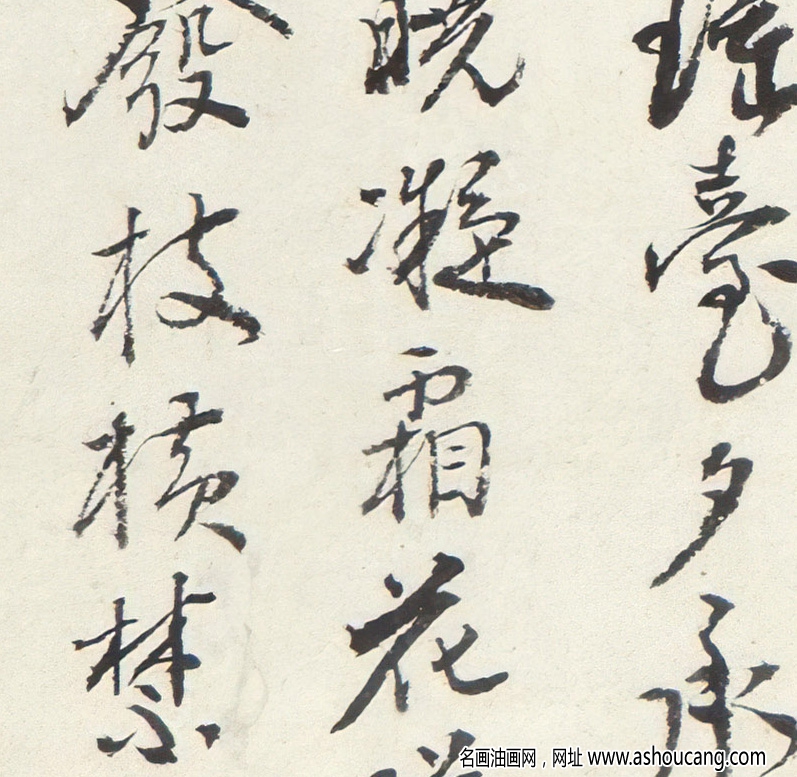 瑶臺夕承
曉凝霜花
發枝橫禁
名画油画网，网址 www.ashoucang.com